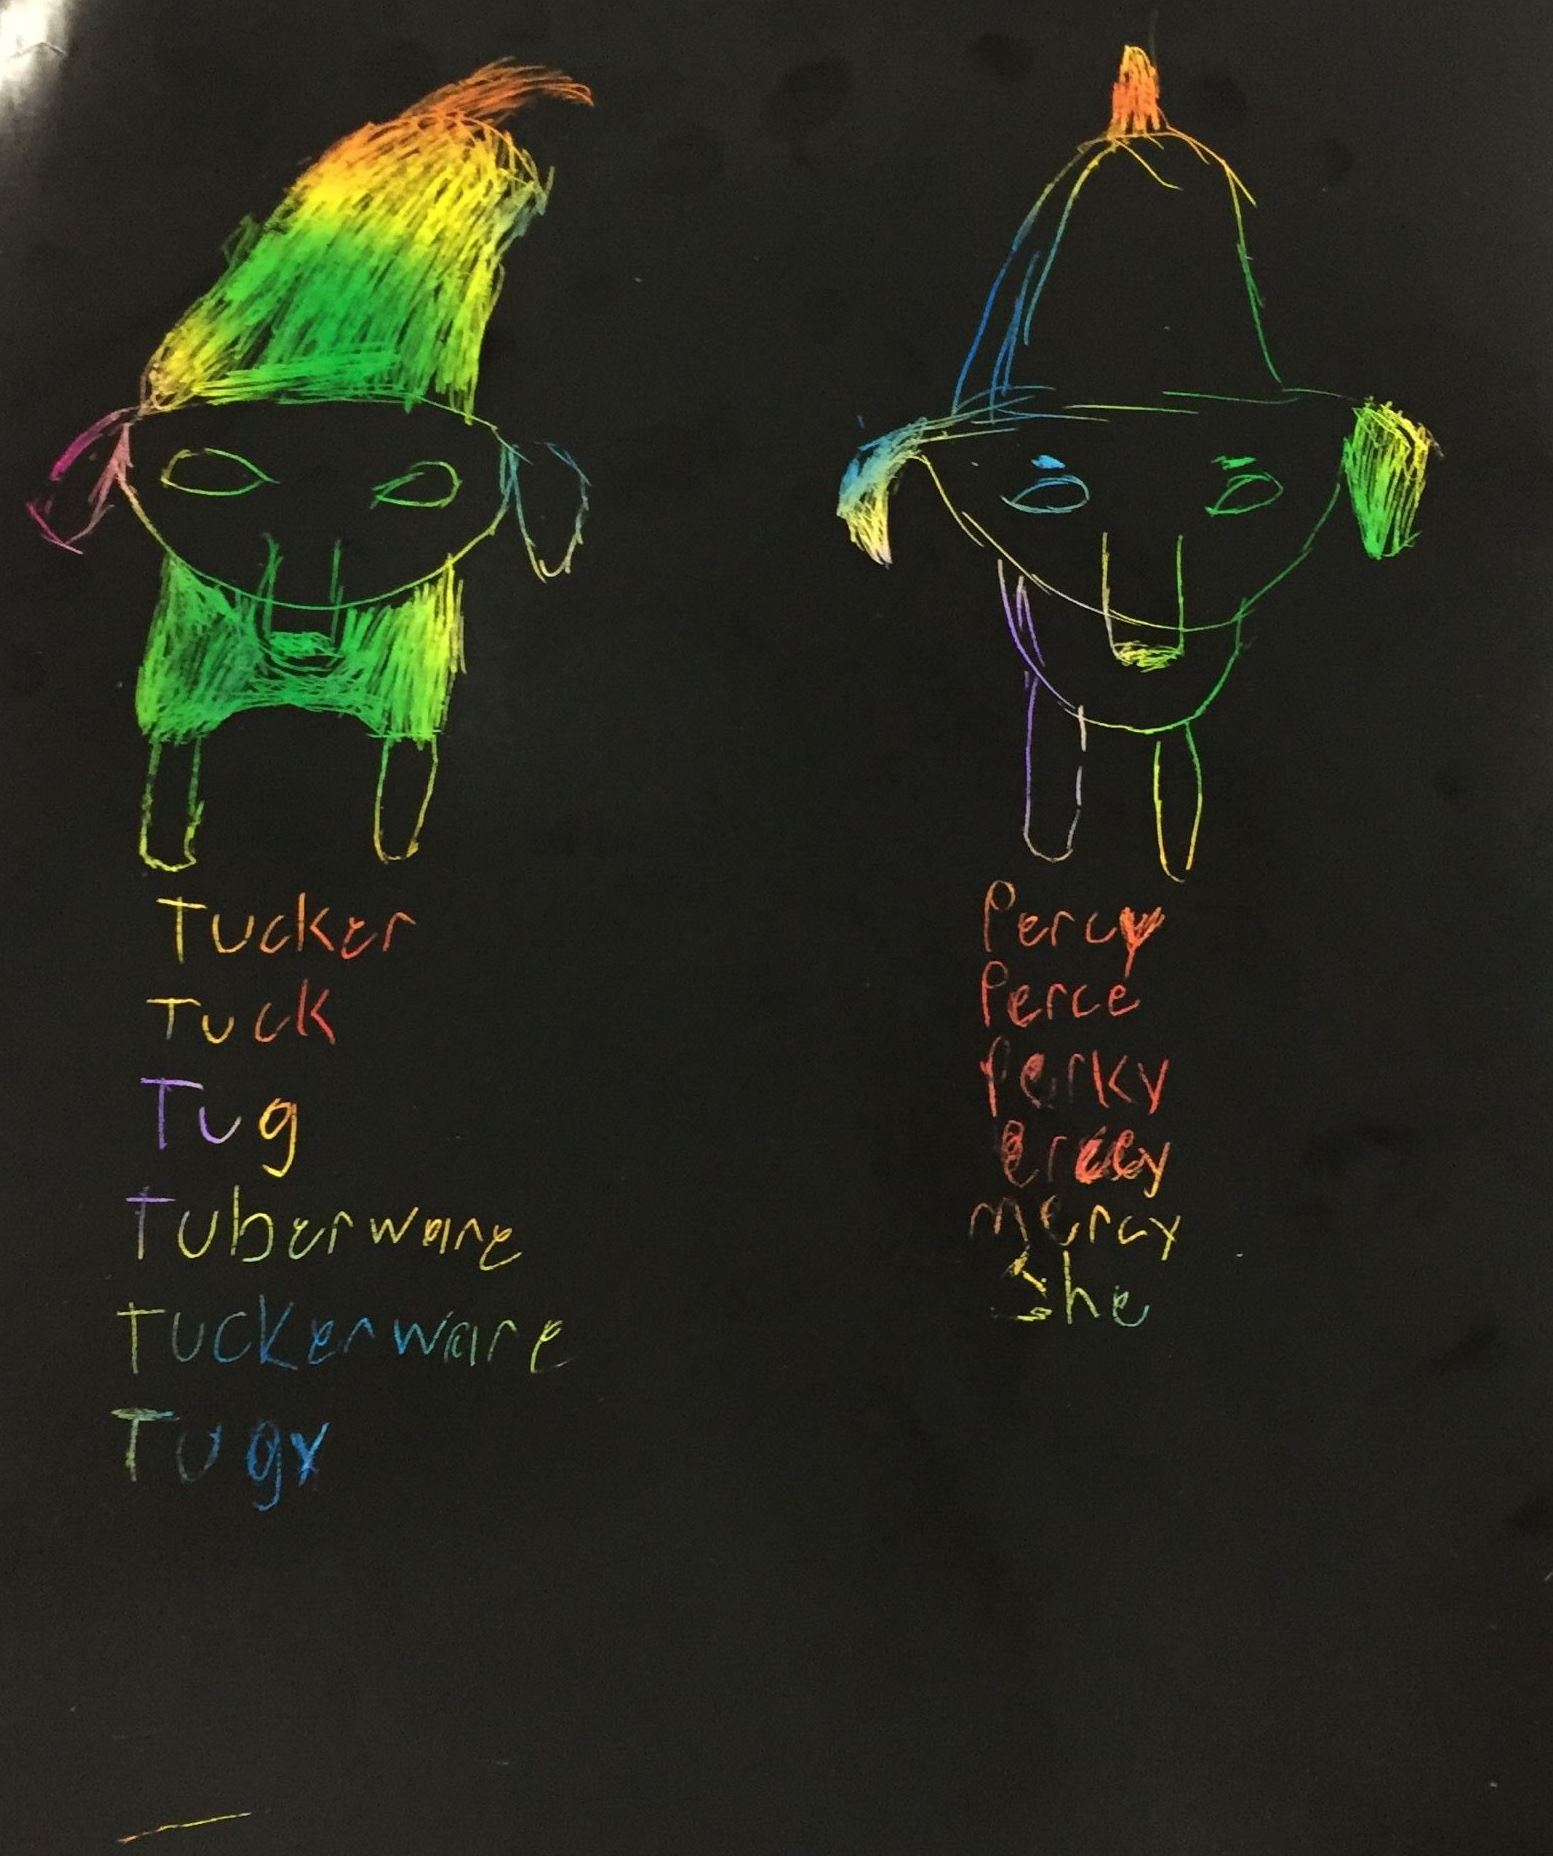 Tucker
Tuck
Tug
Tuberware
Tuckerware
Tugy
Percy
Perce
Perky
Mercy
She